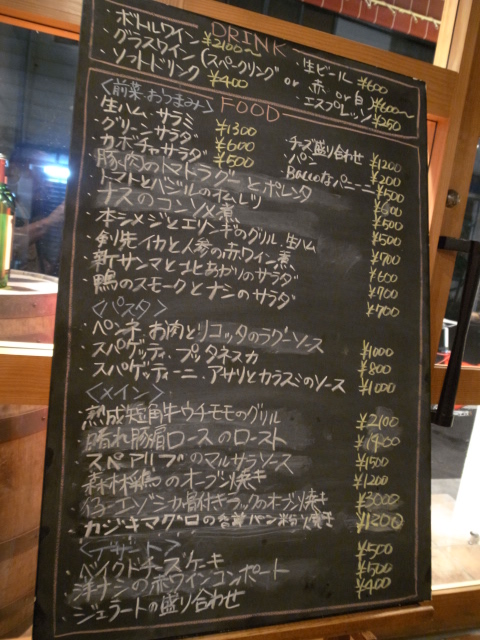 DRINK
・ボトルワイン ¥2100〜
・グラスワイン (スパークリング or 赤 or 白) ¥600〜
・ソフトドリンク ¥400
・生ビール ¥600
・エスプレッソ ¥250
FOOD
〈前菜・おつまみ〉
・生ハム・サラミ ¥1300
・グリーンサラダ ¥600
・カボチャサラダ ¥500
・チーズ盛り合わせ ¥1200
・パン ¥200
・Baccoなパーニーニ ¥500
・豚肉のトマトラグーとポレンタ ¥600
・トマトとバジルのオムレツ ¥500
・ナスのコンソメ煮 ¥500
・本シメジとエリンギのグリル 生ハム ¥700
・剣先イカと人参の赤ワイン煮 ¥600
・新サンマと北あかりのサラダ ¥700
・鴨のスモークとナシのサラダ ¥700
〈パスタ〉
・ペンネ お肉とリコッタのラグーソース ¥1000
・スパゲッティ プッタネスカ ¥800
・スパゲッティーニ アサリとカラスミのソース ¥1000
〈メイン〉
・熟成短角牛ウチモモのグリル ¥2100
・晴れ豚肩ロースのロースト
・スペアリブのマルサラソース ¥1500
・森林鶏のオーブン焼き ¥1200
・エゾシカ骨付きラックのオーブン焼き ¥3000
・カジキマグロの香草パン粉焼き ¥1300
〈デザート〉
・ベイクドチーズケーキ ¥500
・洋ナシの赤ワインコンポート ¥500
・ジェラートの盛り合わせ ¥400